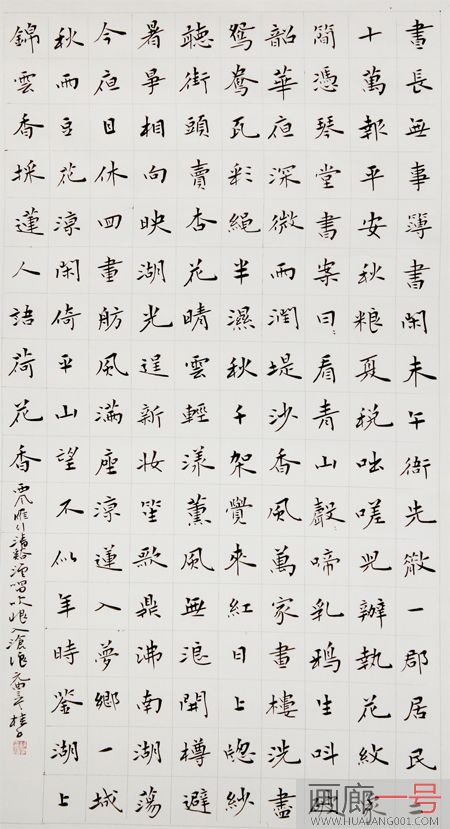 晝長無事簿書閑未午衙先散一郡居民二
十萬報平安秋粮夏税咄嗟兒辦執花紋象
簡憑琴堂書案日々看青山聲啼乳鴉生叫破
韶華夜深微雨潤堤沙香風萬家畫樓洗盡
鴛鴦瓦彩繩半濕秋千架覺來紅日上窻紗
聽街頭賣杏花晴雲輕漾薰風無浪開樽避
暑爭相向映湖光逞新妝笙歌鼎沸南湖蕩
今夜且休回畫舫風滿座涼蓮入夢鄉一城
秋雨豆花涼閑倚平山望不似年時鑒湖上
錦雲香採蓮人語荷花香
西風雁行清谿漁唱吹恨入滄浪
画廊一号
WWW.HUALANG001.COM